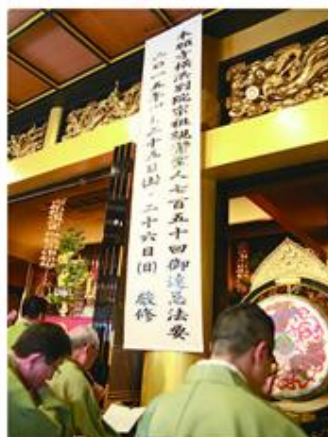 本願寺横浜別院宗祖親鸞聖人七百五十回御遠忌法要
二〇一五年 十月二十五日(土)・二十六日(日) 敬修